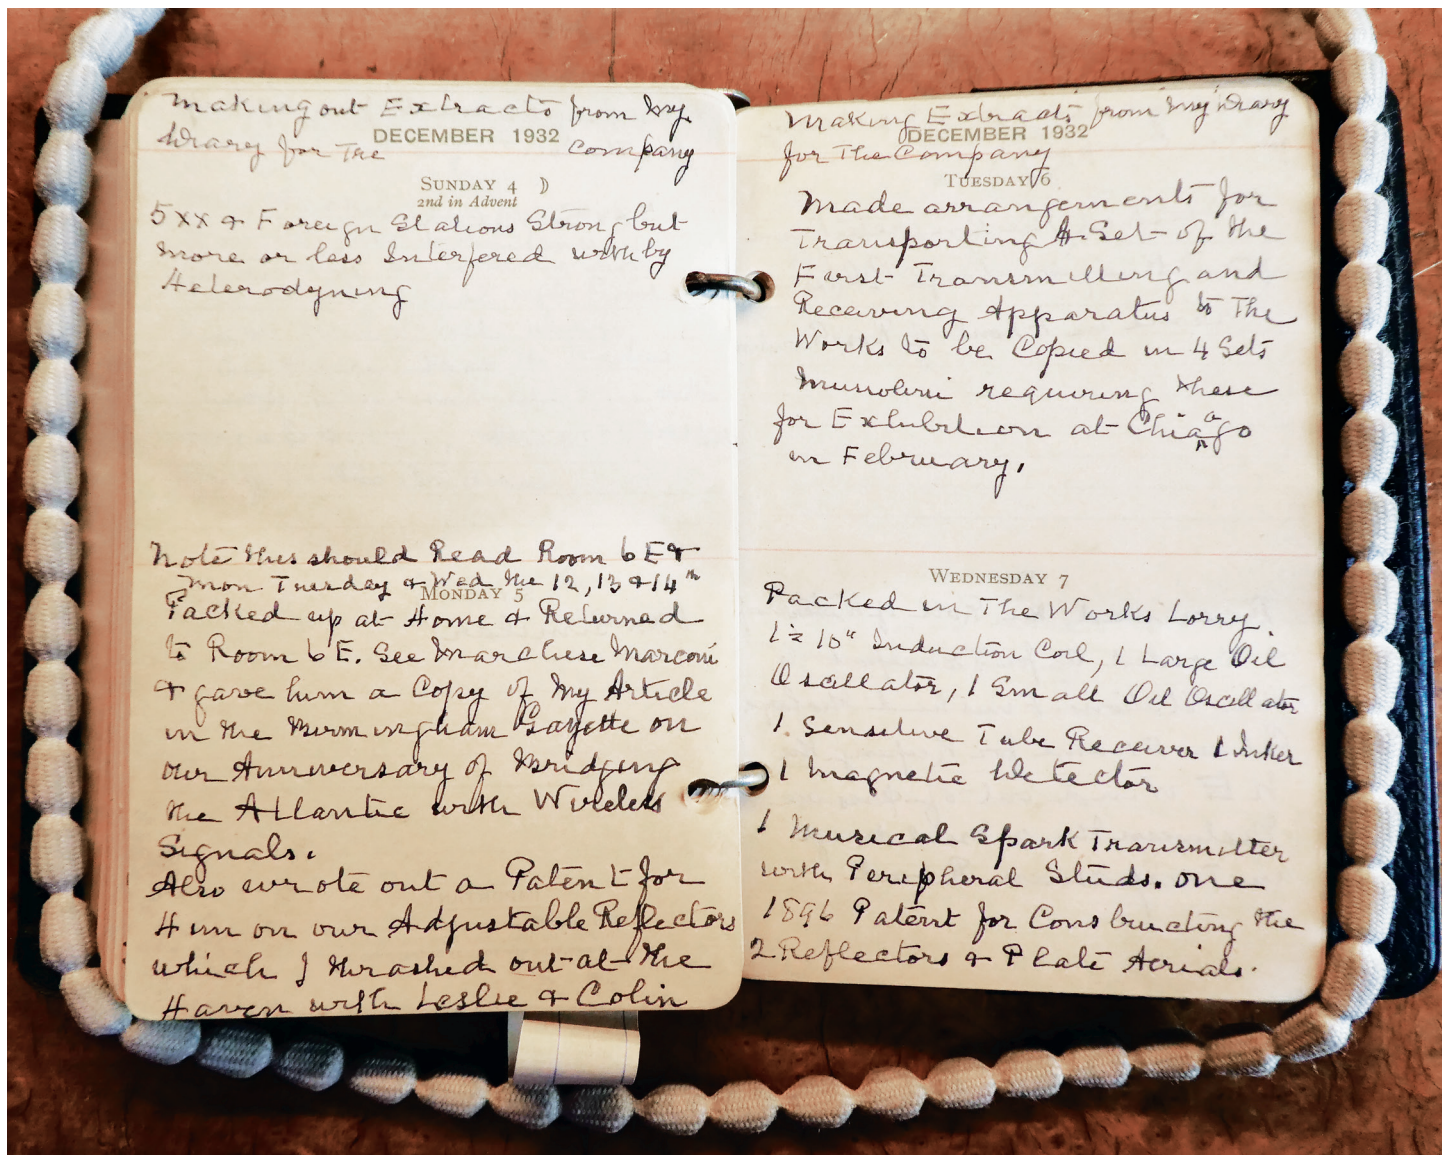 Making out Extracts from My
Diary for The Company
DECEMBER 1932
SUNDAY 4
2nd in Advent
5XX & Foreign Stations Strong but
more or less Interfered with by
Heterodyning
Note this should Read Room 6 E &
Mon Tuesday & Wed the 12, 13 & 14th
MONDAY 5
Packed up at Home & Returned
to Room 6 E. See Marchese Marconi
& gave him a Copy of My Article
in the Birmingham Gazette on
our Anniversary of Bridging
the Atlantic with Wireless
Signals.
Also wrote out a Patent for
Him on our Adjustable Reflectors
which I thrashed out at the
Haven with Leslie & Colin
Making Extracts from My Diary
DECEMBER 1932
for The Company
TUESDAY 6
Made arrangements for
Transporting A Set of the
First Transmitting and
Receiving Apparatus to The
Works to be Copied in 4 Sets
Mussolini requiring these
for Exhibition at Chiago
a
in February.
WEDNESDAY 7
Packed in The Works Lorry.
1 = 10" Induction Coil, 1 Large Oil
Oscillator, 1 Small Oil Oscillator
1 Sensitive Tube Receiver 1 Inker
1 Magnetic Detector
1 Musical Spark Transmitter
with Peripheral Studs. one
1896 Patent for Constructing the
2 Reflectors & Plate Aerials.